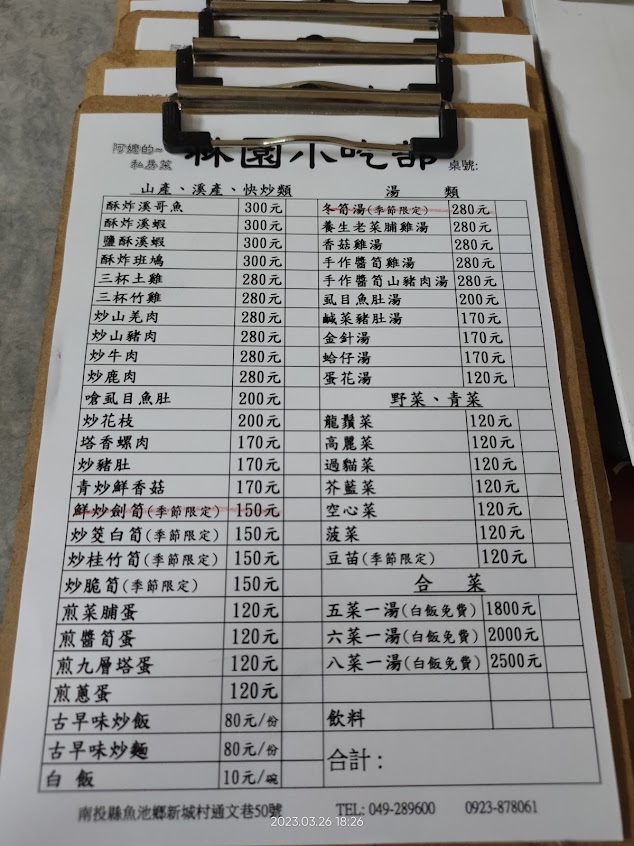 阿嬤的~
私房菜
林園小吃部
桌號:
山產、溪產、快炒類
酥炸溪哥魚 300元
酥炸溪蝦 300元
鹽酥溪蝦 300元
酥炸班鳩 300元
三杯土雞 280元
三杯竹雞 280元
炒山羌肉 280元
炒山豬肉 280元
炒牛肉 280元
炒鹿肉 280元
嗆虱目魚肚 200元
炒花枝 200元
塔香螺肉 170元
炒豬肚 170元
青炒鮮香菇 170元
鮮炒劍筍(季節限定) 150元
炒筊白筍(季節限定) 150元
炒桂竹筍(季節限定) 150元
炒脆筍(季節限定) 150元
煎菜脯蛋 120元
煎醬筍蛋 120元
煎九層塔蛋 120元
煎蔥蛋 120元
古早味炒飯 80元/份
古早味炒麵 80元/份
白飯 10元/碗
湯類
冬筍湯(季節限定) 280元
養生老菜脯雞湯 280元
香菇雞湯 280元
手作醬筍雞湯 280元
手作醬筍山豬肉湯 280元
虱目魚肚湯 200元
鹹菜豬肚湯 170元
金針湯 170元
蛤仔湯 170元
蛋花湯 120元
野菜、青菜
龍鬚菜 120元
高麗菜 120元
過貓菜 120元
芥藍菜 120元
空心菜 120元
菠菜 120元
豆苗(季節限定) 120元
合菜
五菜一湯(白飯免費) 1800元
六菜一湯(白飯免費) 2000元
八菜一湯(白飯免費) 2500元
飲料
合計:
南投縣魚池鄉新城村通文巷50號 TEL: 049-289600 0923-878061
2023.03.26 18:26